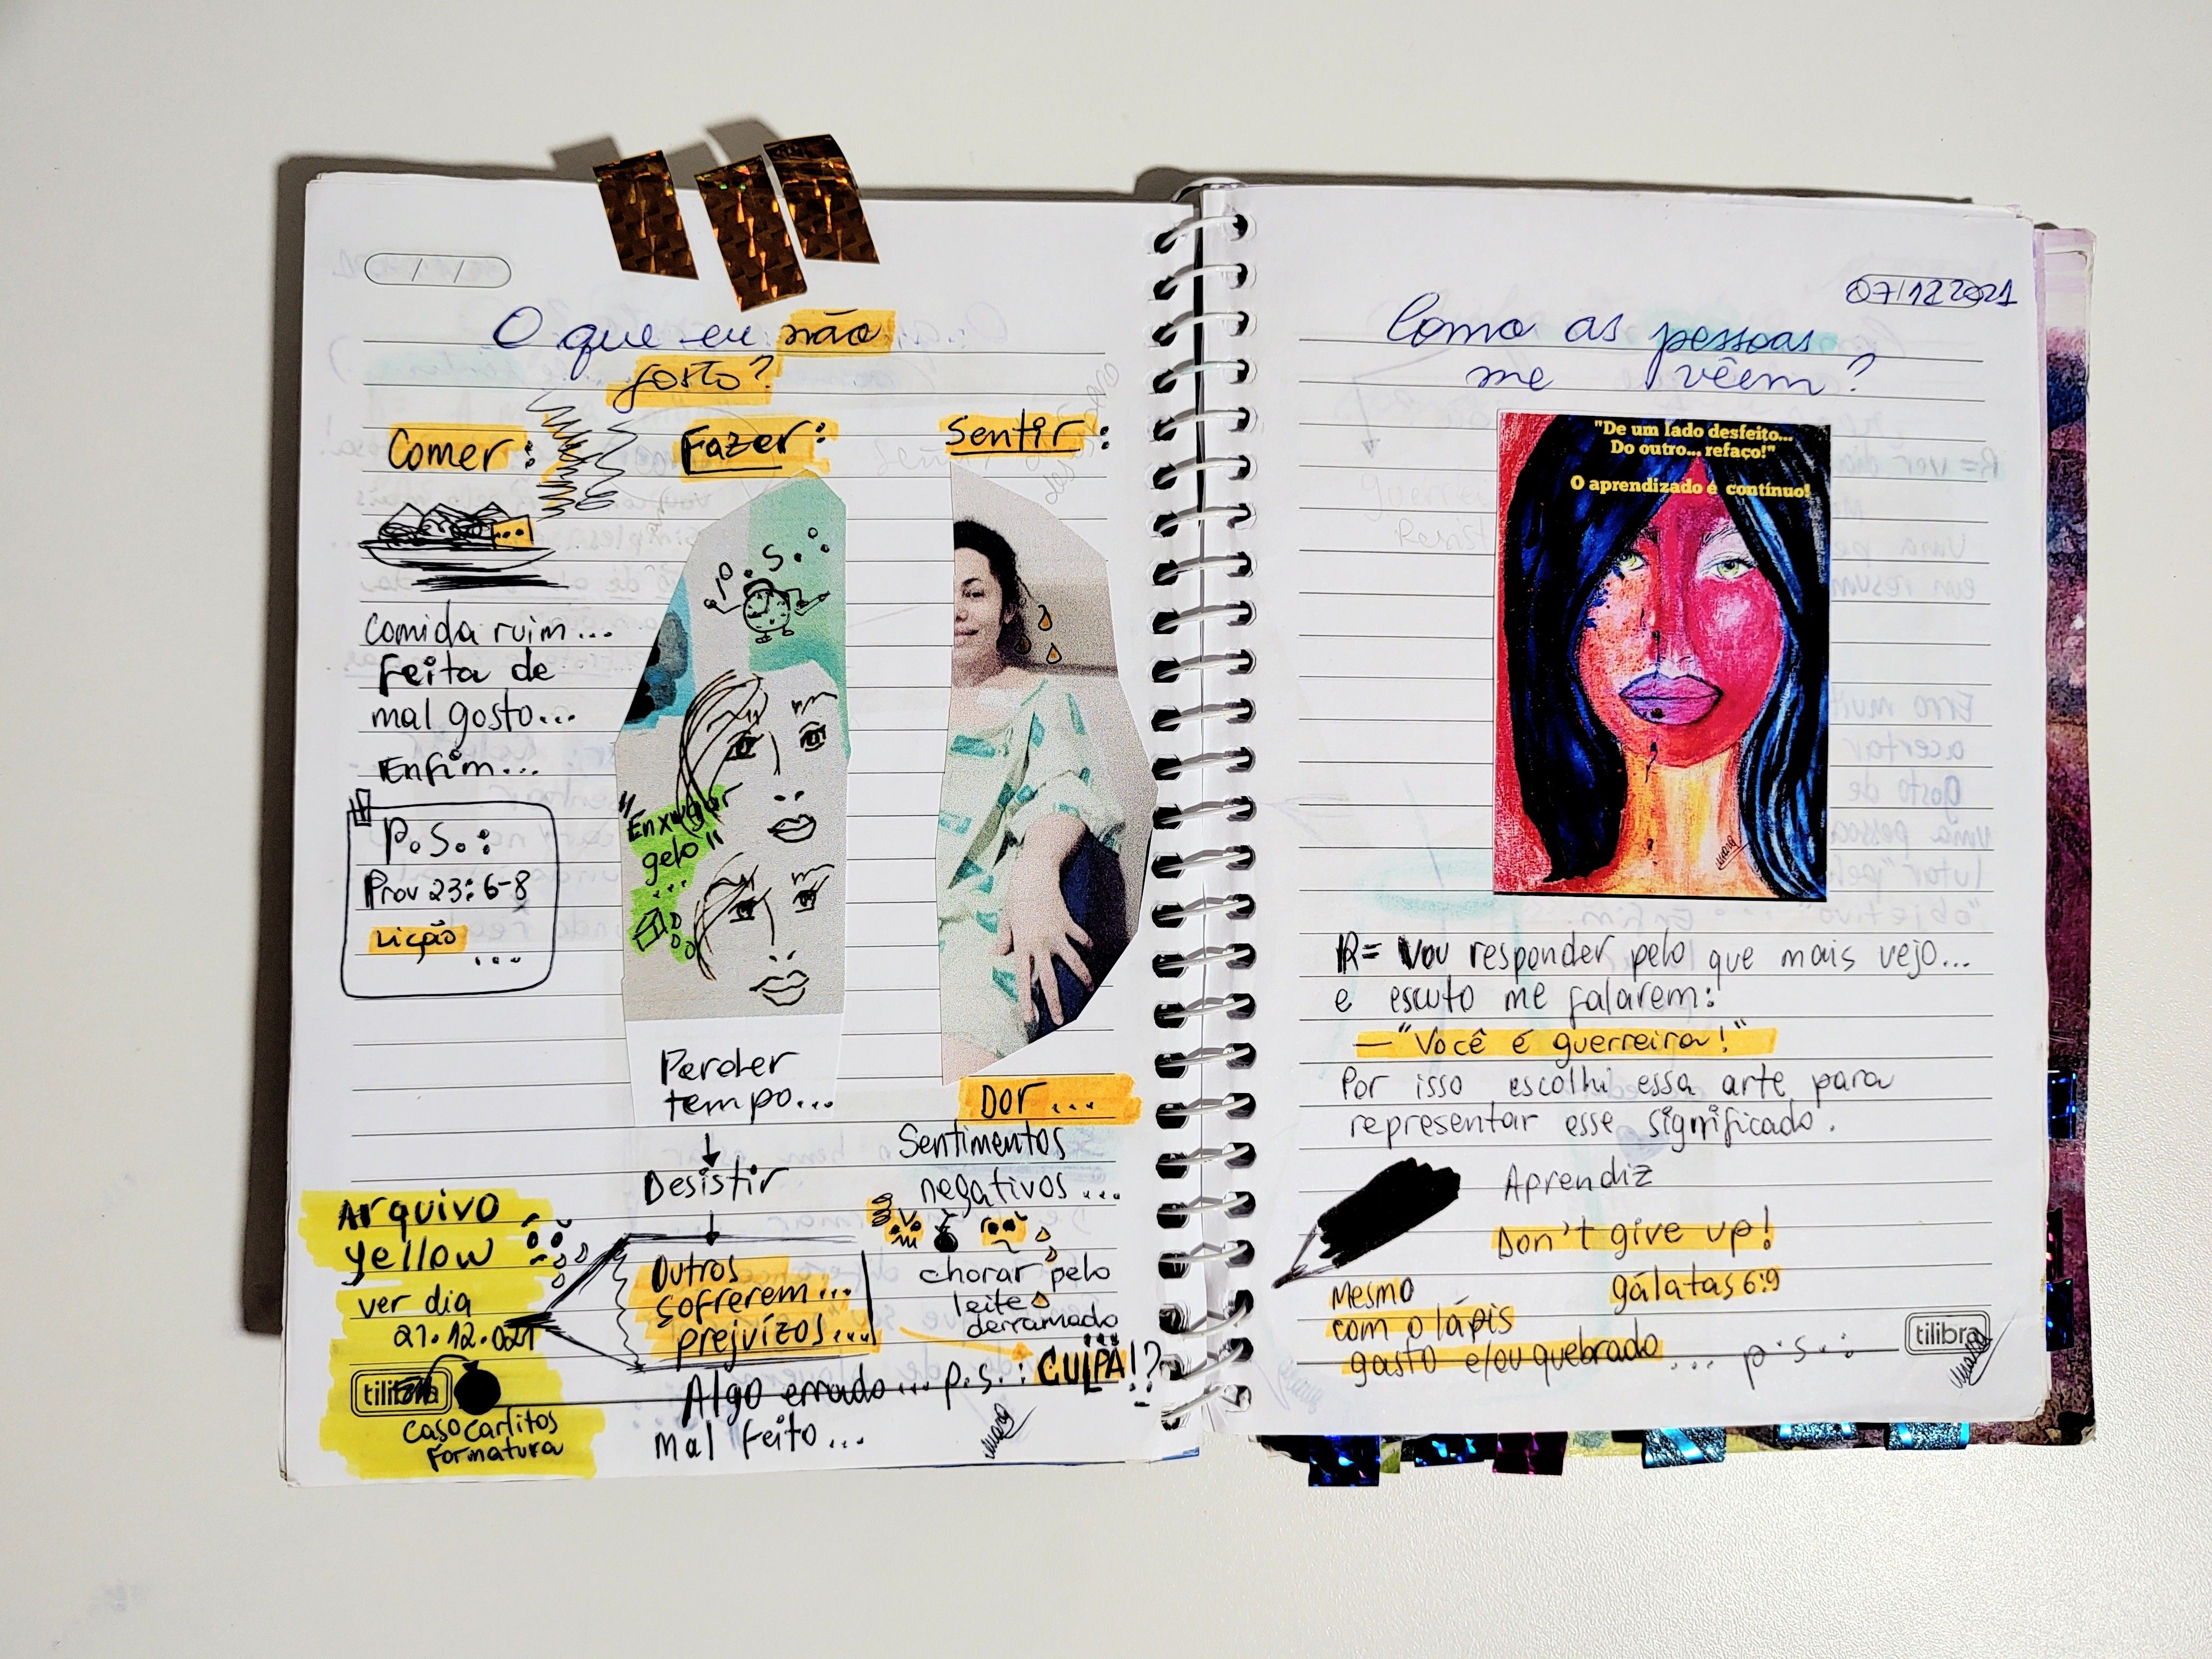 O que eu não
gosto?
Comer:
Comida ruim...
Feita de
mal gosto...
Enfim...
P.S.:
Prov 23:6-8
Lição
...
Fazer:
"Enxugar
gelo"
...
Perder
tempo...
Desistir
Outros
sofrerem...
prejuízos...
Algo errado... p.s.: CULPA!?
Mal feito...
Sentir:
Dor...
Sentimentos
negativos...
chorar pelo
leite
derramado
...
Arquivo
yellow
ver dia
21.12.021
tilibra
caso Carlitos
Formatura
07/12/2021
Como as pessoas
me vêem?
"De um lado desfeito...
Do outro... refaço!"
O aprendizado é contínuo!
R= Vou responder pelo que mais vejo...
e escuto me falarem:
— "Você é guerreira!"
Por isso escolhi essa arte para
representar esse significado.
Aprendiz
Don't give up!
gálatas 6:9
Mesmo
com o lápis
gasto e/ou quebrado... p.s.:
tilibra